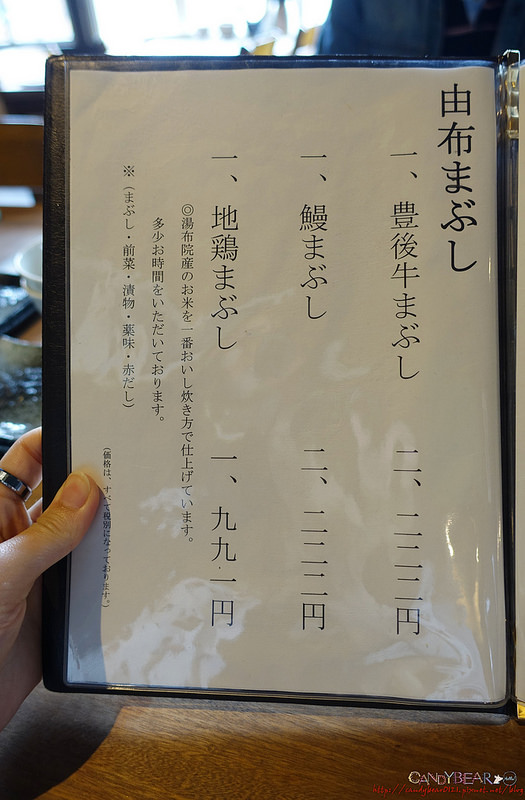 由布まぶし
一、豊後牛まぶし 二、二二二円
一、鰻まぶし 二、二二二円
一、地鶏まぶし 一、九九一円
◎湯布院産のお米を一番おいし炊き方で仕上げています。
多少お時間をいただいております。
※（まぶし・前菜・漬物・薬味・赤だし）
（価格は、すべて税別になっております。）
CANDYBEAR